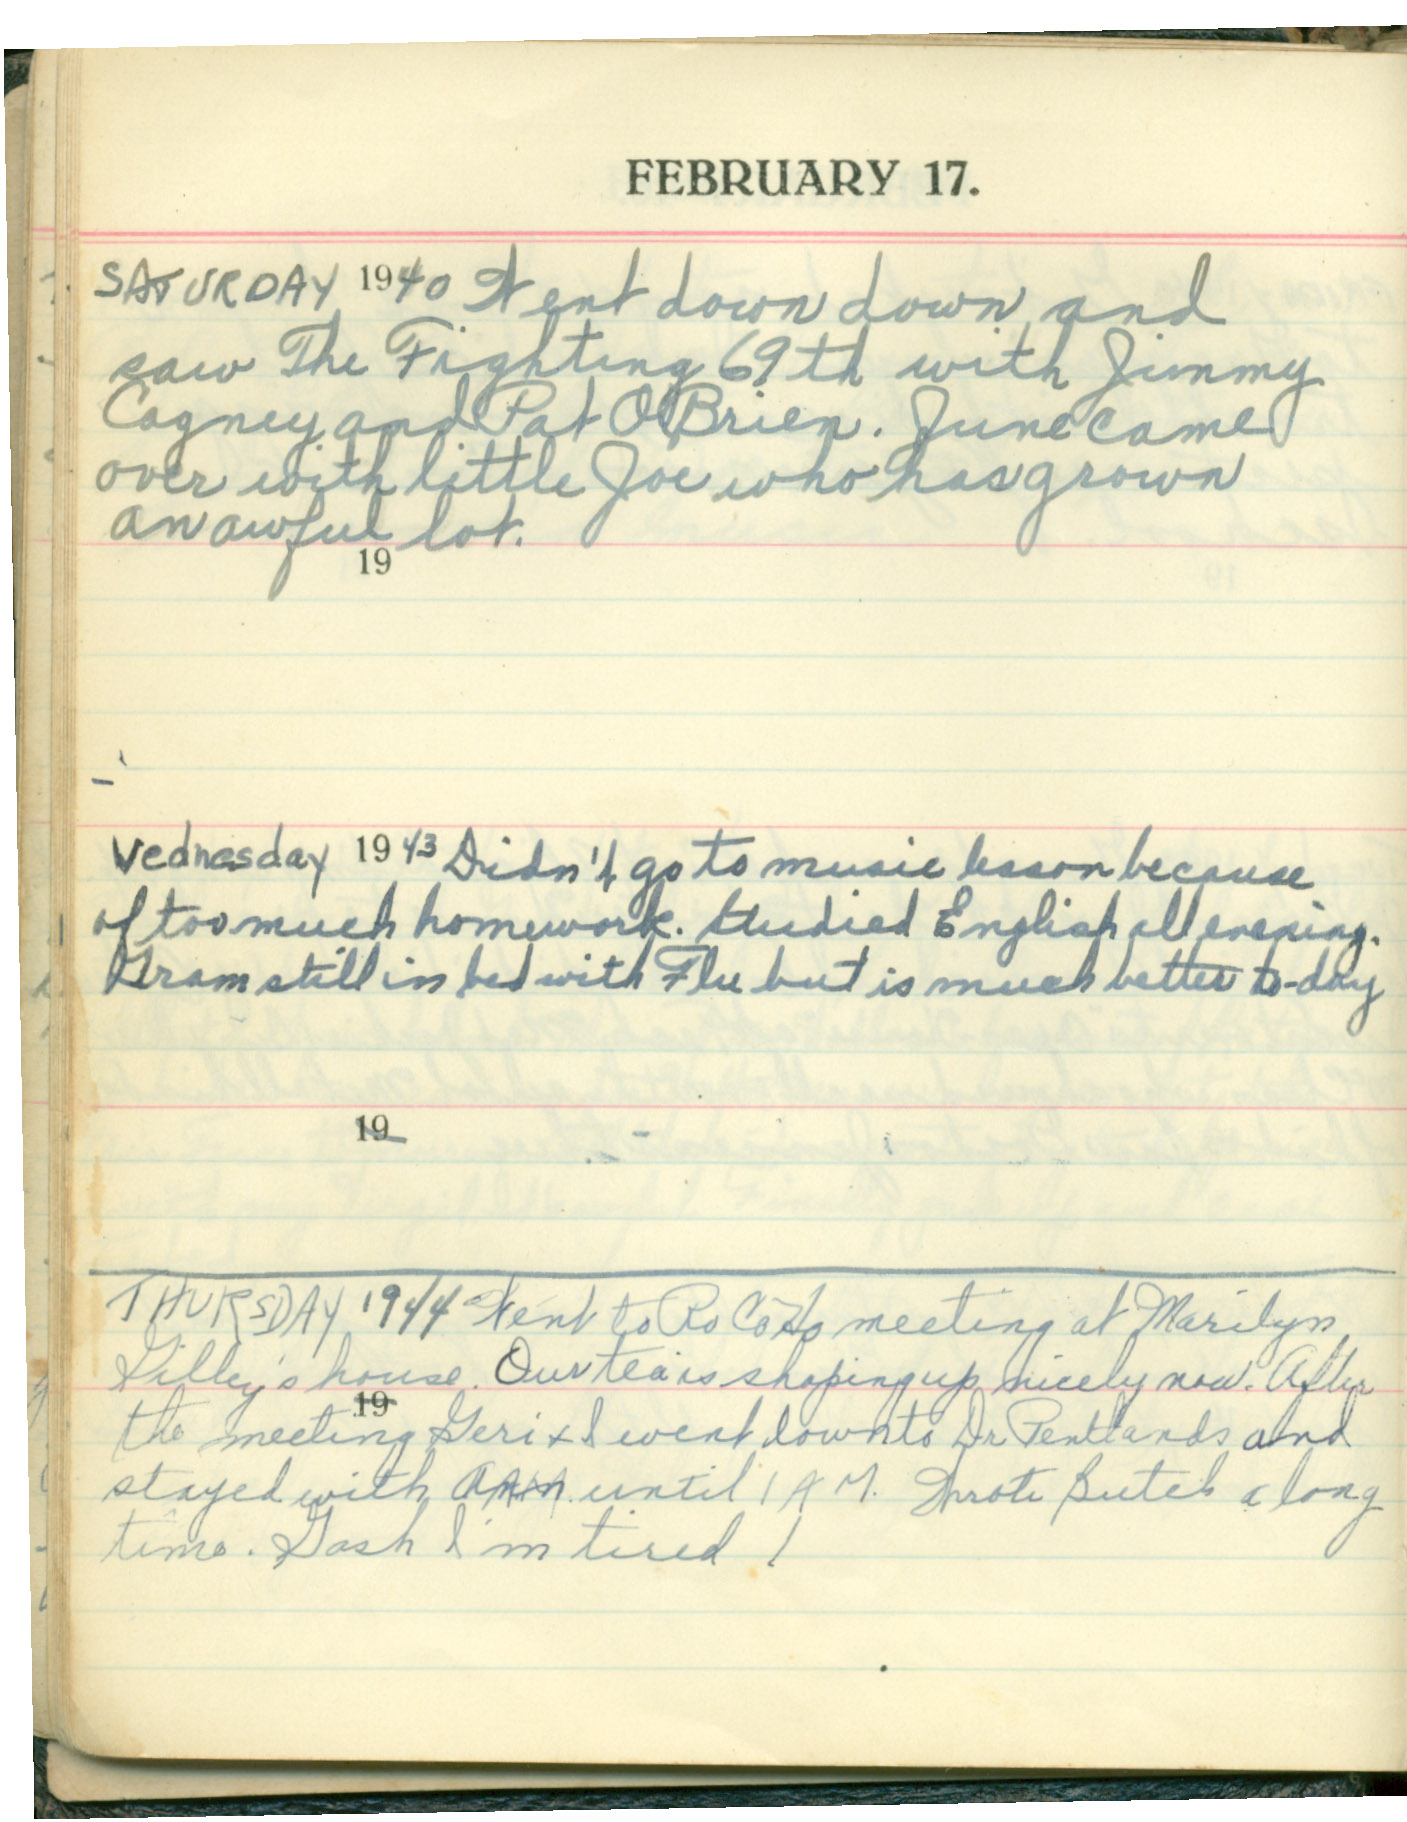 FEBRUARY 17.
SATURDAY 1940 Went down down and
saw The Fighting 69th with Jimmy
Cagney and Pat O'Brien. June came
over with little Joe who has grown
an awful lot.
19
Wednesday 1943 Didn't go to music lesson because
of too much homework. Studied English all evening.
Gram still in bed with Flu but is much better to-day
19
THURSDAY 1944 Went to meeting at Marilyn
Gilley's house. Our tea is shaping up nicely now. After
19
the meeting Geri & I went down to Dr Pentlands and
stayed with Ann until 1 A M. Wrote Butch a long
time. Gosh I'm tired !